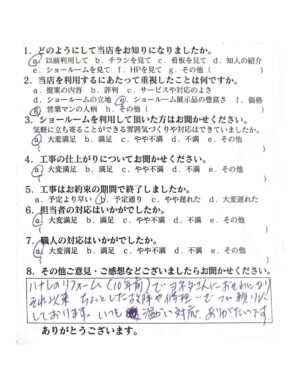 1. どのようにして当店をお知りになりましたか。
a 以前利用して b. チラシを見て c. 看板を見て d. 知人の紹介
e. ショールームを見て f. HPを見て g. その他 ( )
2. 当店を利用するにあたって重視したことは何ですか。
a. 提案の内容 b. 評判 c. サービスや対応のよさ
d. ショールームの立地 e ショールーム展示品の豊富さ f. 価格
g 営業マンの人柄 h その他 ( )
3. ショールームを利用して頂いた方はお聞かせください。
気軽に立ち寄ることができる雰囲気づくりや対応はできていましたか。
a 大変満足 b. 満足 c. やや不満 d. 不満 e. その他
( )
4. 工事の仕上がりについてお聞かせください。
a 大変満足 b. 満足 c. やや不満 d. 不満 e. その他
( )
5. 工事はお約束の期間で終了しましたか。
a. 予定より早い b 予定通り c. やや遅れた d. 大変遅れた
6. 担当者の対応はいかがでしたか。
a 大変満足 b. 満足 c. やや不満 d. 不満 e. その他
( )
7. 職人の対応はいかがでしたか。
a 大変満足 b. 満足 c. やや不満 d. 不満 e. その他
( )
8. その他ご意見・ご感想などございましたらお聞かせください。
のリフォーム(10年前)で さんにおせわになり
それ以来 ちょっとした故障や修理 でつい頼りに
しております。いつも 温かい対応、ありがたいです。
ありがとうございます。